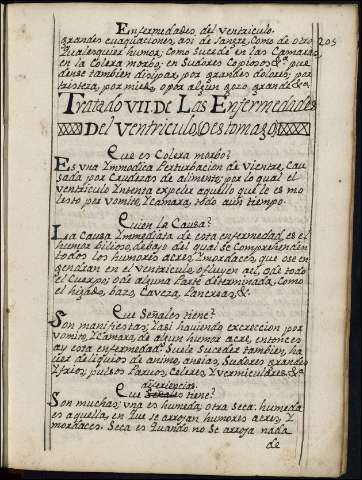 Enfermedades del Ventriculo.
grandes euaquaciones, asi de sangre, como de otro
qualesquier humor; como sucede en las Camaras,
en la Colera morbo; en sudores Copiosos &ª. pue
dense tambien disipar, por grandes dolores; por
tristeza, por miedo, o por algun gozo, grande &ª.
205
Tratado VII. De Las Enfermedades
Del Ventriculo, o estomago
Que es Colera morbo?
Es una Ymmodica Perturbacion de Vientre, Cau
sada por Crudezas de alimento; por lo qual el
ventriculo Yntenta expeler aquello que le es mo
lesto por vomito, Y Camara, todo aun tiempo.
Quien la Causa?
La Causa Ymmediata de esta enfermedad, es el
humor bilioso, debajo del qual se Comprehenden
todos los humores acres, Y mordaces, que ose en
gendran en el ventriculo, ofluyen aci, ode todo
el Cuerpo; o de alguna Parte determinada, como
el higado, bazo, Caveza, Pancreas, &.
Que Señales tiene?
Son manifiestas; Casi haviendo excrecion por
vomito, Y Camara, de algun humor acre, entonces
ay esta enfermedad. Suele Suceder tambien, ha
cier deliquios de animo, ansias, Sudores grandes
Y frios; pulsos Parvos, Celeres, Y vermiculares &ª
diferiencias
Que Señales tiene?
Son muchas; una es humeda; otra seca: humeda
es aquella, en que se arrojan humores acres, Y
mordaces. Seca es quando no se arroja nada
de